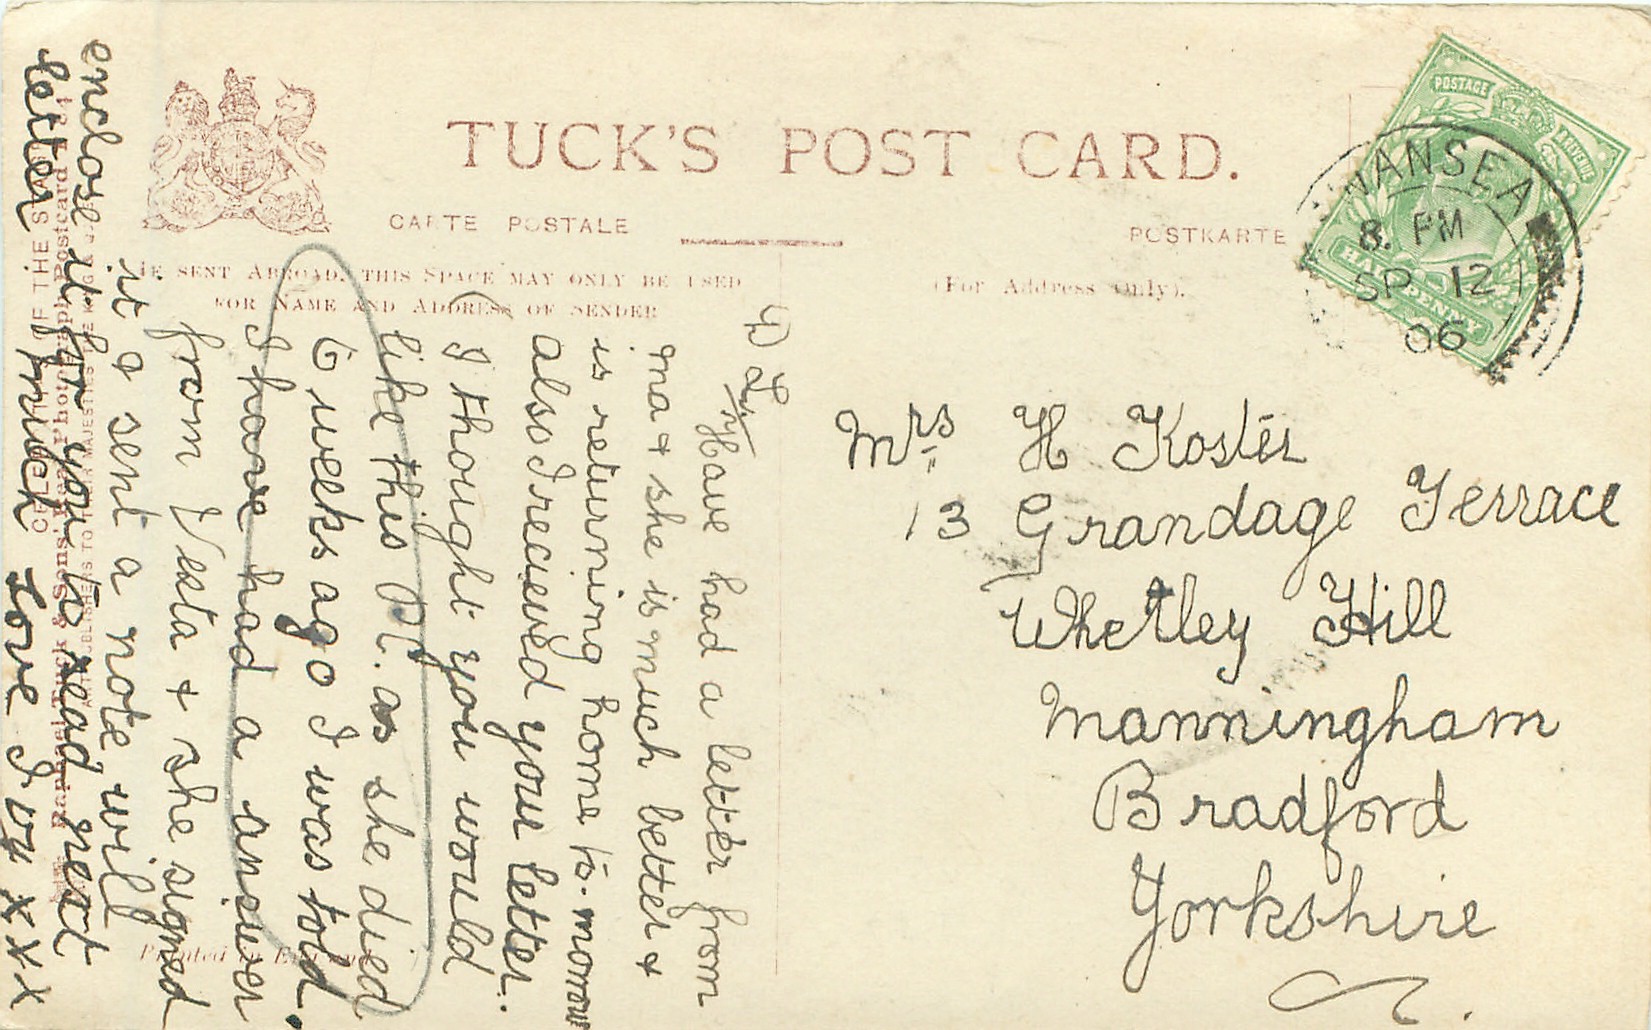 TUCK'S POST CARD.
CARTE POSTALE
POSTKARTE
IF SENT ABROAD, THIS SPACE MAY ONLY BE USED
FOR NAME AND ADDRESS OF SENDER
(For Address Only).
POSTAGE
REVENUE
HALFPENNY
SWANSEA
8. PM
SP 12
06
D Liz
Have had a letter from
ma + she is much better +
is returning home to-morrow
also I recieved your letter.
I thought you would
like this P.C. as she died
6 weeks ago I was told.
I have had a answer
from Vesta + she signed
it & sent a note, will
enclose it for you to read next
letter much love Ivy xxx
Mrs H Koster
13 Grandage Terrace
Whetley Hill
Manningham
Bradford
Yorkshire
Printed in England